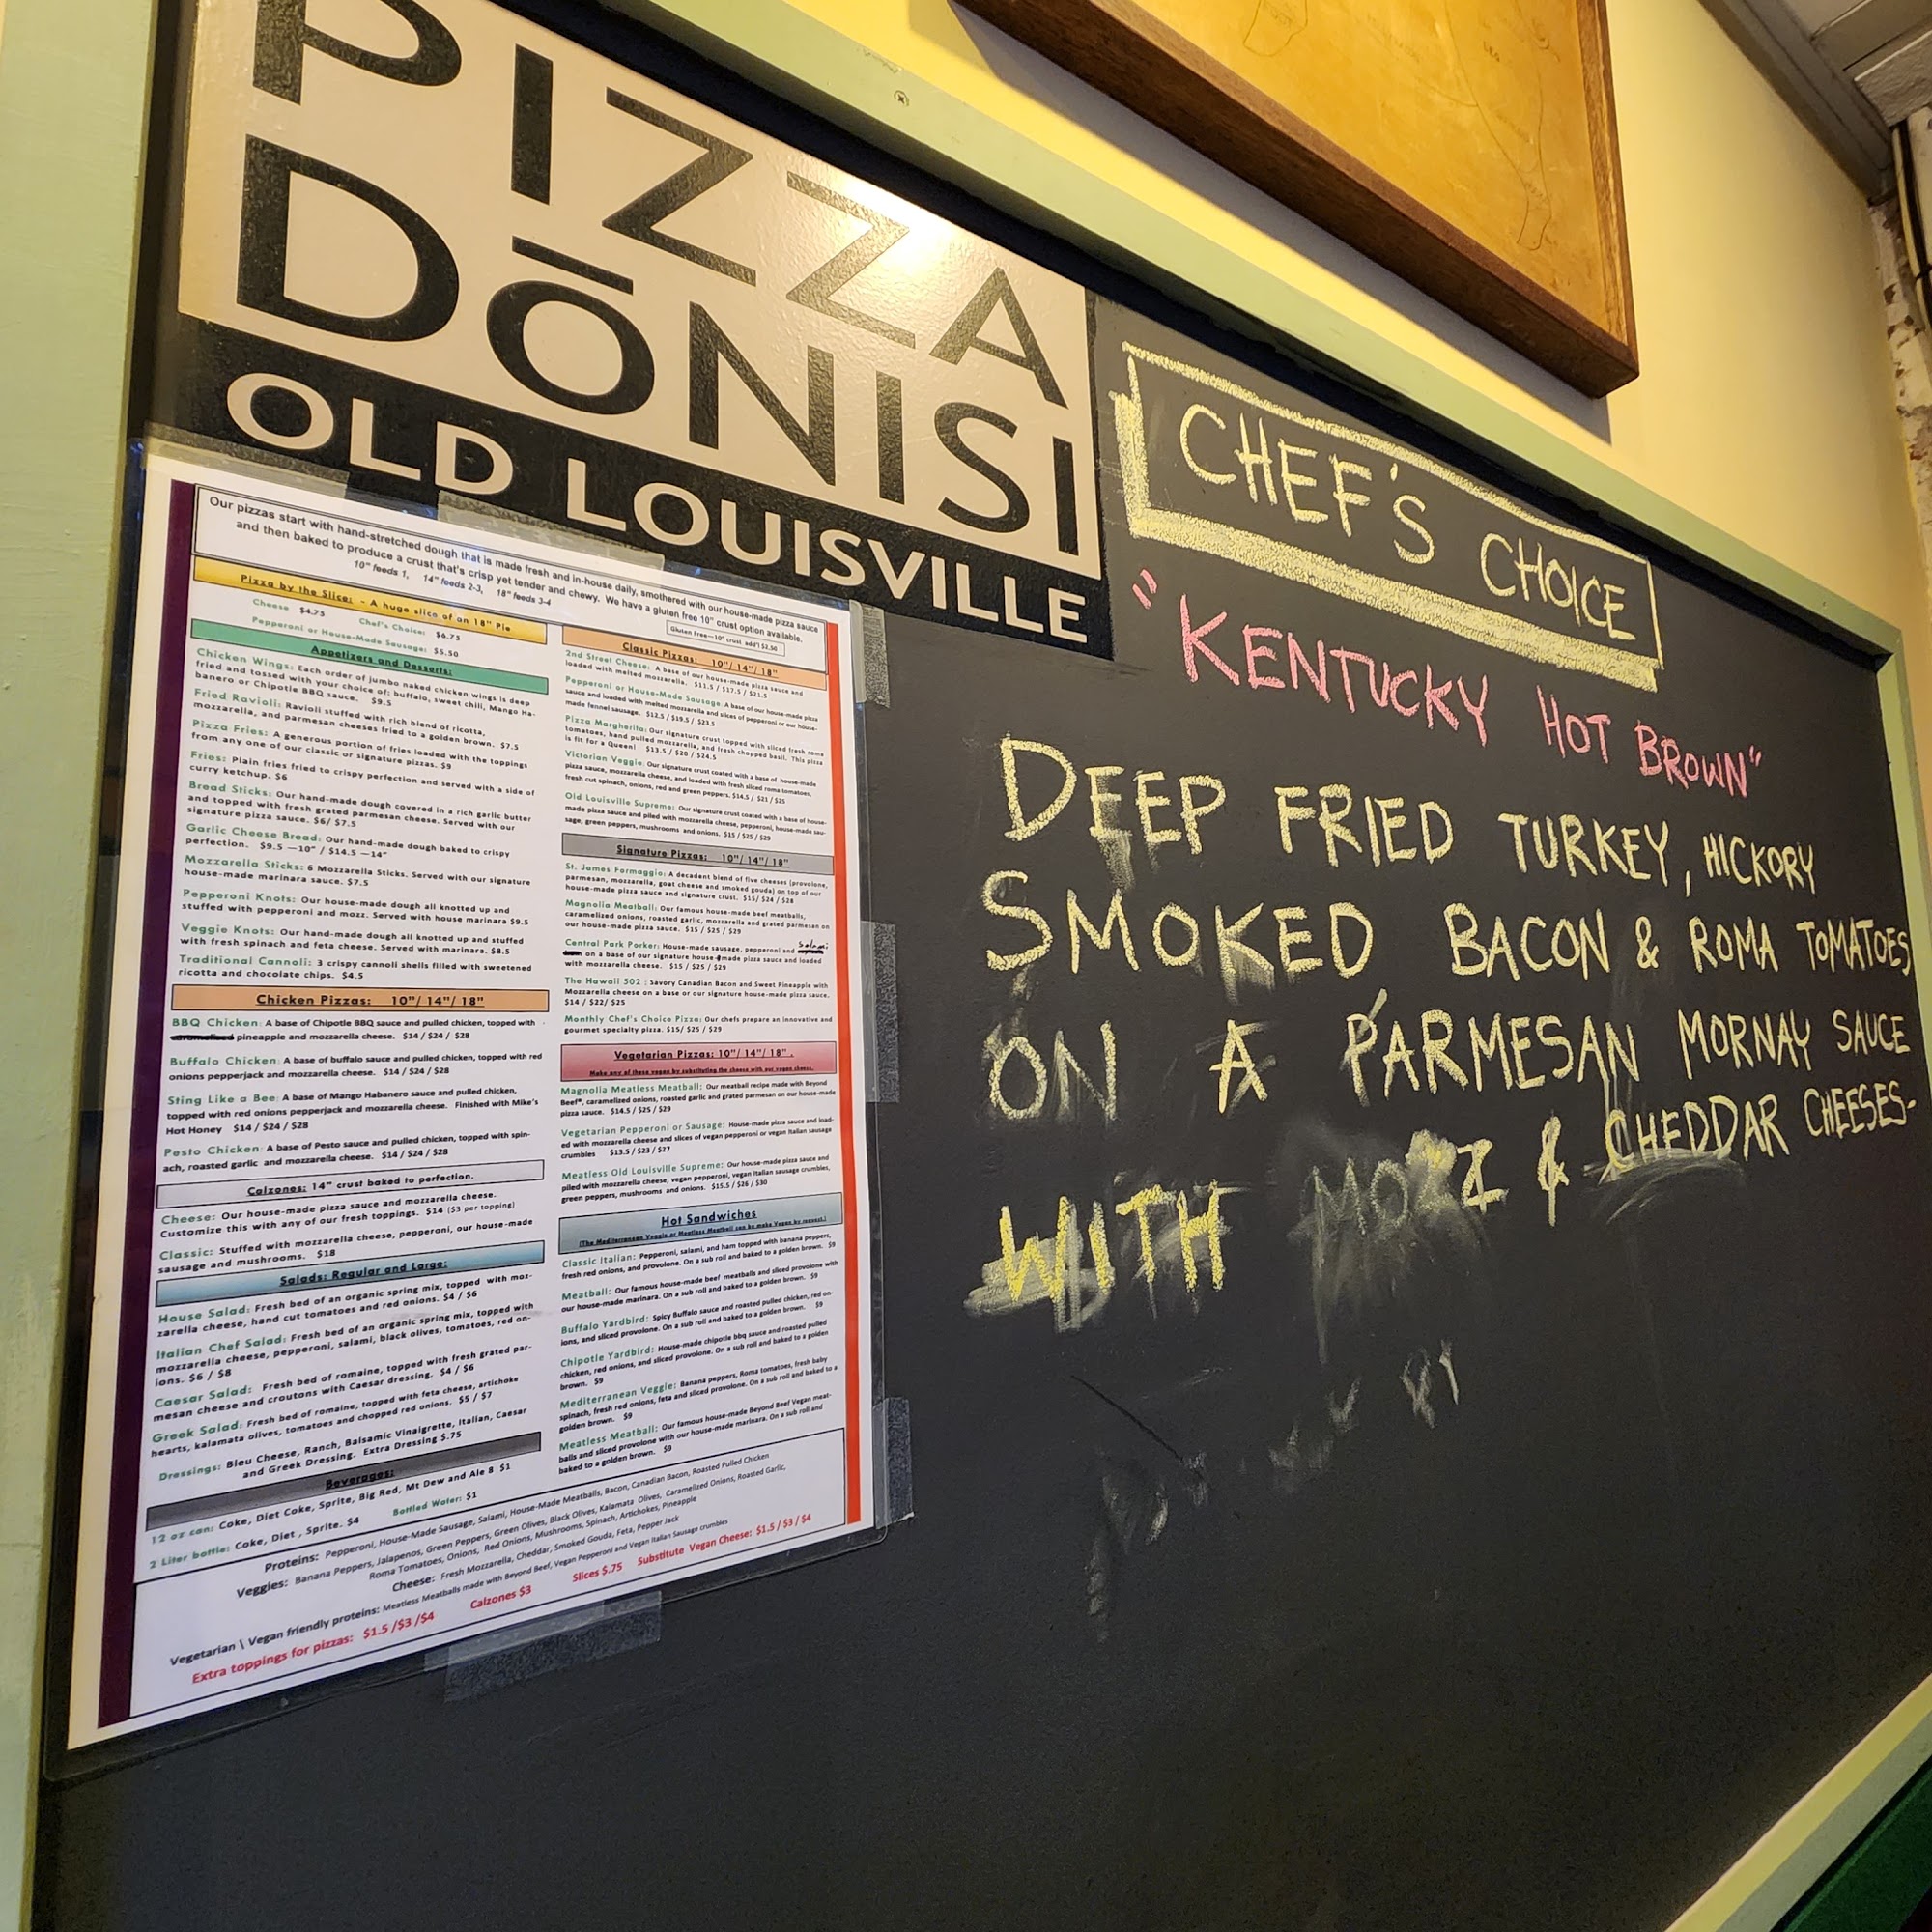 PIZZA
DŌNISI
OLD LOUISVILLE
Our pizzas start with hand-stretched dough that is made fresh and in-house daily, smothered with our house-made pizza sauce
and then baked to produce a crust that's crisp yet tender and chewy. We have a gluten free 10" crust option available.
10" feeds 1, 14" feeds 2-3, 18" feeds 3-4
Gluten Free—10" crust add'l $2.50
Pizza by the Slice: - A huge slice of an 18" Pie
Cheese $4.75 Chef's Choice: $6.75
Pepperoni or House-Made Sausage: $5.50
Appetizers and Desserts:
Chicken Wings: Each order of jumbo naked chicken wings is deep
fried and tossed with your choice of: buffalo, sweet chili, Mango Ha-
banero or Chipotle BBQ sauce. $9.5
Fried Ravioli: Ravioli stuffed with rich blend of ricotta,
mozzarella, and parmesan cheeses fried to a golden brown. $7.5
Pizza Fries: A generous portion of fries loaded with the toppings
from any one of our classic or signature pizzas. $9
Fries: Plain fries fried to crispy perfection and served with a side of
curry ketchup. $6
Bread Sticks: Our hand-made dough covered in a rich garlic butter
and topped with fresh grated parmesan cheese. Served with our
signature pizza sauce. $6/ $7.5
Garlic Cheese Bread: Our hand-made dough baked to crispy
perfection. $9.5 —10" / $14.5 —14"
Mozzarella Sticks: 6 Mozzarella Sticks. Served with our signature
house-made marinara sauce. $7.5
Pepperoni Knots: Our house-made dough all knotted up and
stuffed with pepperoni and mozz. Served with house marinara $9.5
Veggie Knots: Our hand-made dough all knotted up and stuffed
with fresh spinach and feta cheese. Served with marinara. $8.5
Traditional Cannoli: 3 crispy cannoli shells filled with sweetened
ricotta and chocolate chips. $4.5
Chicken Pizzas: 10"/ 14"/ 18"
BBQ Chicken: A base of Chipotle BBQ sauce and pulled chicken, topped with
pineapple and mozzarella cheese. $14 / $24 / $28
Buffalo Chicken: A base of buffalo sauce and pulled chicken, topped with red
onions pepperjack and mozzarella cheese. $14 / $24 / $28
Sting Like a Bee: A base of Mango Habanero sauce and pulled chicken,
topped with red onions pepperjack and mozzarella cheese. Finished with Mike's
Hot Honey $14 / $24 / $28
Pesto Chicken: A base of Pesto sauce and pulled chicken, topped with spin-
ach, roasted garlic and mozzarella cheese. $14 / $24 / $28
Calzones: 14" crust baked to perfection.
Cheese: Our house-made pizza sauce and mozzarella cheese.
Customize this with any of our fresh toppings. $14 ($3 per topping)
Classic: Stuffed with mozzarella cheese, pepperoni, our house-made
sausage and mushrooms. $18
Salads: Regular and Large:
House Salad: Fresh bed of an organic spring mix, topped with moz-
zarella cheese, hand cut tomatoes and red onions. $4 / $6
Italian Chef Salad: Fresh bed of an organic spring mix, topped with
mozzarella cheese, pepperoni, salami, black olives, tomatoes, red on-
ions. $6 / $8
Caesar Salad: Fresh bed of romaine, topped with fresh grated par-
mesan cheese and croutons with Caesar dressing. $4 / $6
Greek Salad: Fresh bed of romaine, topped with feta cheese, artichoke
hearts, kalamata olives, tomatoes and chopped red onions. $5 / $7
Dressings: Bleu Cheese, Ranch, Balsamic Vinaigrette, Italian, Caesar
and Greek Dressing. Extra Dressing $.75
Beverages:
12 oz can: Coke, Diet Coke, Sprite, Big Red, Mt Dew and Ale 8 $1
2 Liter bottle: Coke, Diet , Sprite. $4 Bottled Water: $1
Classic Pizzas: 10"/ 14"/ 18"
2nd Street Cheese: A base of our house-made pizza sauce and
loaded with melted mozzarella. $11.5 / $17.5 / $21.5
Pepperoni or House-Made Sausage: A base of our house-made pizza
sauce and loaded with melted mozzarella and slices of pepperoni or our house-
made fennel sausage. $12.5 / $19.5 / $23.5
Pizza Margherita: Our signature crust topped with sliced fresh roma
tomatoes, hand pulled mozzarella, and fresh chopped basil. This pizza
is fit for a Queen! $13.5 / $20 / $24.5
Victorian Veggie: Our signature crust coated with a base of house-made
pizza sauce, mozzarella cheese, and loaded with fresh sliced roma tomatoes,
fresh cut spinach, onions, red and green peppers. $14.5 / $21 / $25
Old Louisville Supreme: Our signature crust coated with a base of house-
made pizza sauce and piled with mozzarella cheese, pepperoni, house-made sau-
sage, green peppers, mushrooms and onions. $15 / $25 / $29
Signature Pizzas: 10"/ 14"/ 18"
St. James Formaggio: A decadent blend of five cheeses (provolone,
parmesan, mozzarella, goat cheese and smoked gouda) on top of our
house-made pizza sauce and signature crust. $15/ $24 / $28
Magnolia Meatball: Our famous house-made beef meatballs,
caramelized onions, roasted garlic, mozzarella and grated parmesan on
our house-made pizza sauce. $15 / $25 / $29
Central Park Porker: House-made sausage, pepperoni and salami
on a base of our signature house-made pizza sauce and loaded
with mozzarella cheese. $15 / $25 / $29
The Hawaii 502 : Savory Canadian Bacon and Sweet Pineapple with
Mozzarella cheese on a base or our signature house-made pizza sauce.
$14 / $22/ $25
Monthly Chef's Choice Pizza: Our chefs prepare an innovative and
gourmet specialty pizza. $15/ $25 / $29
Vegetarian Pizzas: 10"/ 14"/ 18" .
Make any of these vegan by substituting the cheese with our vegan cheese.
Magnolia Meatless Meatball: Our meatball recipe made with Beyond
Beef*, caramelized onions, roasted garlic and grated parmesan on our house-made
pizza sauce. $14.5 / $25 / $29
Vegetarian Pepperoni or Sausage: House-made pizza sauce and load-
ed with mozzarella cheese and slices of vegan pepperoni or vegan Italian sausage
crumbles $13.5 / $23 / $27
Meatless Old Louisville Supreme: Our house-made pizza sauce and
piled with mozzarella cheese, vegan pepperoni, vegan Italian sausage crumbles,
green peppers, mushrooms and onions. $15.5 / $26 / $30
Hot Sandwiches
(The Mediterranean Veggie or Meatless Meatball can be make Vegan by request.)
Classic Italian: Pepperoni, salami, and ham topped with banana peppers,
fresh red onions, and provolone. On a sub roll and baked to a golden brown. $9
Meatball: Our famous house-made beef meatballs and sliced provolone with
our house-made marinara. On a sub roll and baked to a golden brown. $9
Buffalo Yardbird: Spicy Buffalo sauce and roasted pulled chicken, red on-
ions, and sliced provolone. On a sub roll and baked to a golden brown. $9
Chipotle Yardbird: House-made chipotle bbq sauce and roasted pulled
chicken, red onions, and sliced provolone. On a sub roll and baked to a golden
brown. $9
Mediterranean Veggie: Banana peppers, Roma tomatoes, fresh baby
spinach, fresh red onions, feta and sliced provolone. On a sub roll and baked to a
golden brown. $9
Meatless Meatball: Our famous house-made Beyond Beef Vegan meat-
balls and sliced provolone with our house-made marinara. On a sub roll and
baked to a golden brown. $9
Proteins: Pepperoni, House-Made Sausage, Salami, House-Made Meatballs, Bacon, Canadian Bacon, Roasted Pulled Chicken
Veggies: Banana Peppers, Jalapenos, Green Peppers, Green Olives, Black Olives, Kalamata Olives, Caramelized Onions, Roasted Garlic,
Roma Tomatoes, Onions, Red Onions, Mushrooms, Spinach, Artichokes, Pineapple
Cheese: Fresh Mozzarella, Cheddar, Smoked Gouda, Feta, Pepper Jack
Vegetarian \ Vegan friendly proteins: Meatless Meatballs made with Beyond Beef, Vegan Pepperoni and Vegan Italian Sausage crumbles
Extra toppings for pizzas: $1.5 /$3 /$4 Calzones $3 Slices $.75 Substitute Vegan Cheese: $1.5 / $3 / $4
CHEF'S CHOICE
"KENTUCKY HOT BROWN"
DEEP FRIED TURKEY, HICKORY
SMOKED BACON & ROMA TOMATOES
ON A PARMESAN MORNAY SAUCE
WITH MOZZ & CHEDDAR CHEESES-